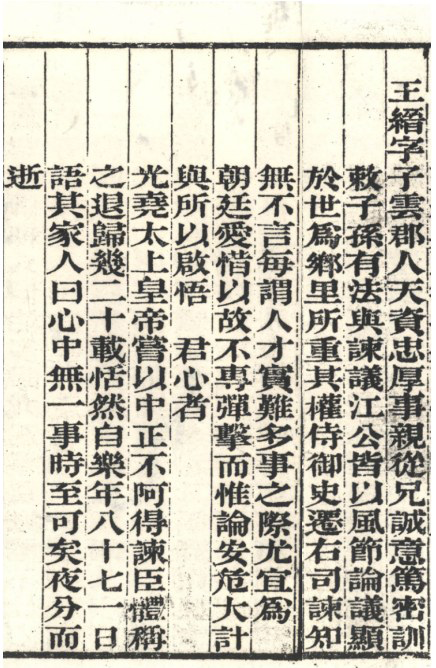 王縉字子雲郡人天資忠厚事親從兄誠意篤密訓
敕子孫有法與諫議江公皆以風節論議顯
於世爲鄉里所重其權侍御史遷右司諫知
無不言每謂人才實難多事之際尤宜爲
朝廷愛惜以故不專彈擊而惟論安危大計
與所以啟悟　君心者
光堯太上皇帝嘗以中正不阿得諫臣體稱
之退歸幾二十載恬然自樂年八十七一日
語其家人曰心中無一事時至可矣夜分而
逝